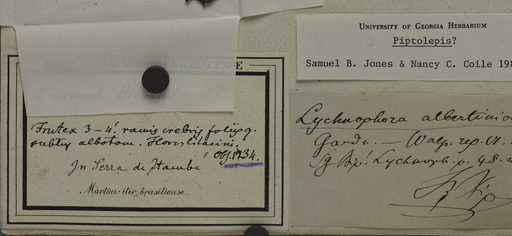 UNIVERSITY OF GEORGIA HERBARIUM
Piptolepis?
Samuel B. Jones & Nancy C. Coile 198
Frutex 3-4. ramis crebris foliisq.
subtus albotom. Flores lilacini,
In Serra de Itambé
Obs. 1734.
Martius: iter brasiliense.
Lychnophora albertinio
Gardn. — Walp. rep. VI.
Sz Bip. Lychnoph. p. 48. n
Sz Bip